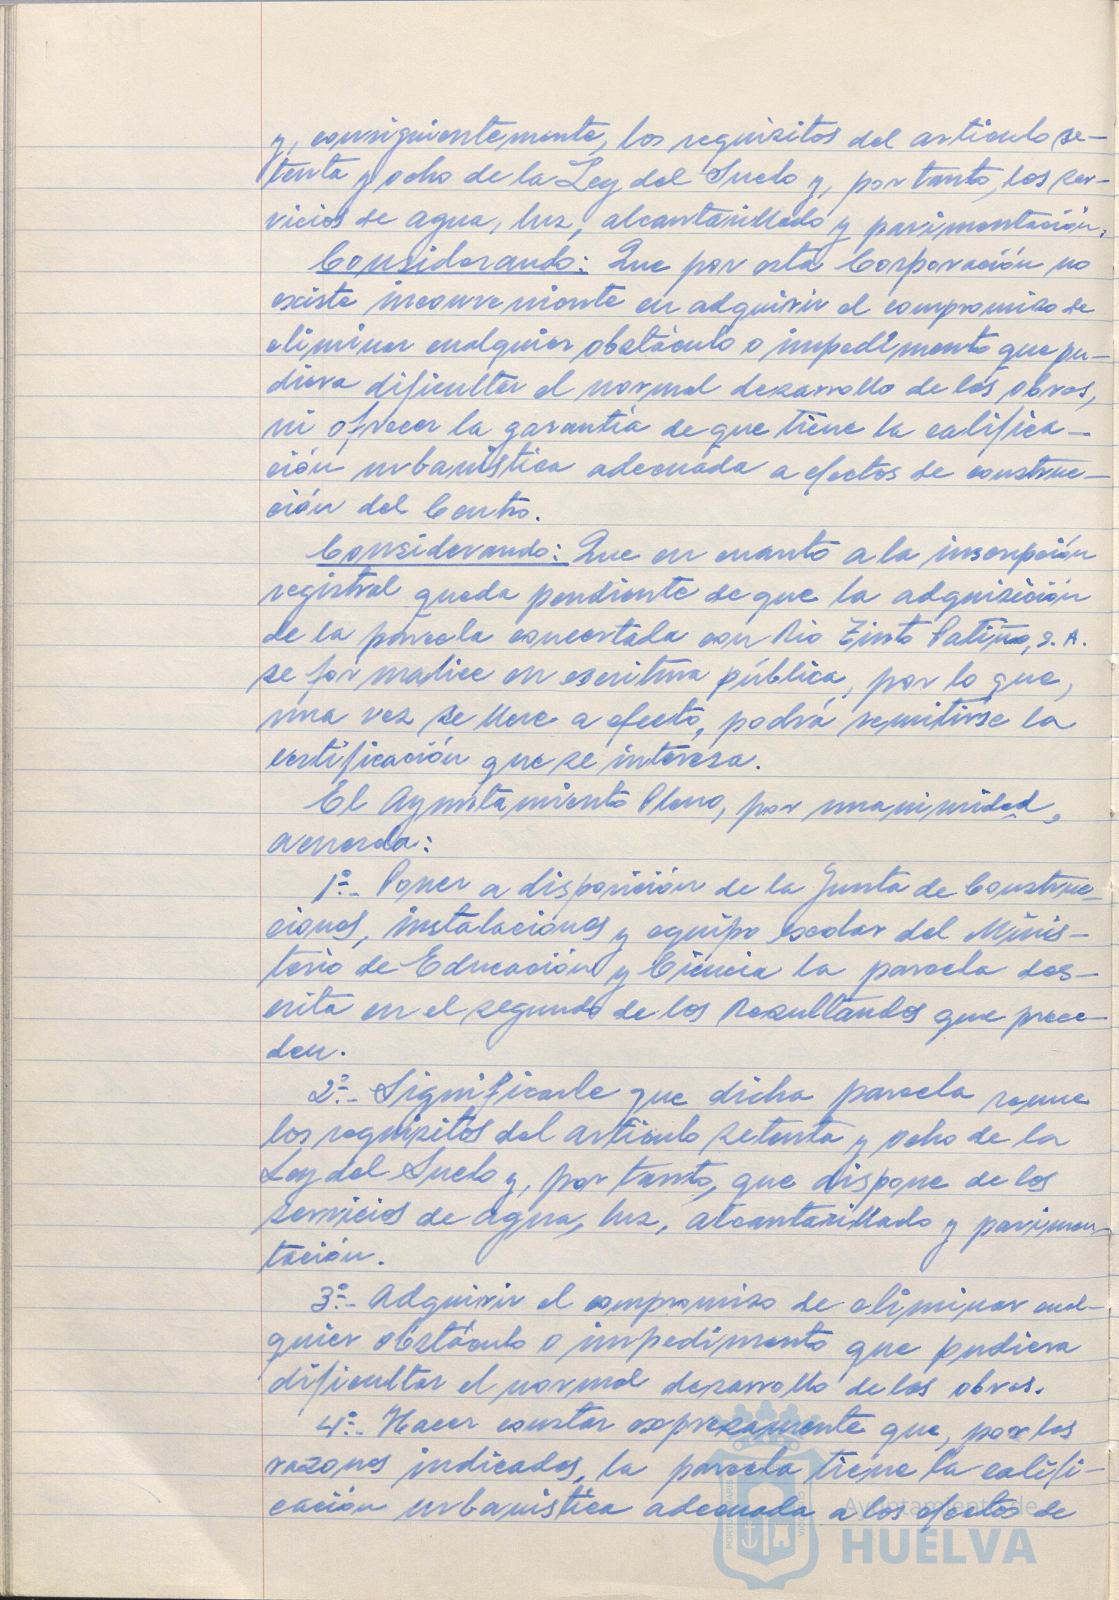 y, consiguientemente, los requisitos del articulo se-
tenta y ocho de la Ley del Suelo y, por tanto, los ser-
vicios de agua, luz, alcantarillado y pavimentación.
Considerando: Que por esta Corporación no
existe inconveniente en adquirir el compromiso de
eliminar cualquier obstáculo o impedimento que pu-
diera dificultar el normal desarrollo de las obras,
ni ofrecer la garantía de que tiene la califica-
ción urbanística adecuada a efectos de construc-
ción del Centro.
Considerando: Que en cuanto a la inscripción
registral queda pendiente de que la adquisición
de la parcela concertada con Rio Tinto Patiño, S.A.
se formalice en escritura pública, por lo que,
una vez se lleve a efecto, podrá remitirse la
certificación que se interesa.
El Ayuntamiento Pleno, por unanimidad,
acuerda:
1º.- Poner a disposición de la Junta de Construc-
ciones, instalaciones y equipo escolar del Minis-
terio de Educación y Ciencia la parcela des-
crita en el segundo de los Resultandos que prece-
den.
2º.- Significarle que dicha parcela reune
los requisitos del artículo setenta y ocho de la
Ley del Suelo y, por tanto, que dispone de los
servicios de agua, luz, alcantarillado y pavimen-
tación.
3º.- Adquirir el compromiso de eliminar cual-
quier obstáculo o impedimento que pudiera
dificultar el normal desarrollo de las obras.
4º.- Hacer constar expresamente que, por las
razones indicadas, la parcela tiene la califi-
cación urbanística adecuada a los efectos de
Ayuntamiento de
HUELVA